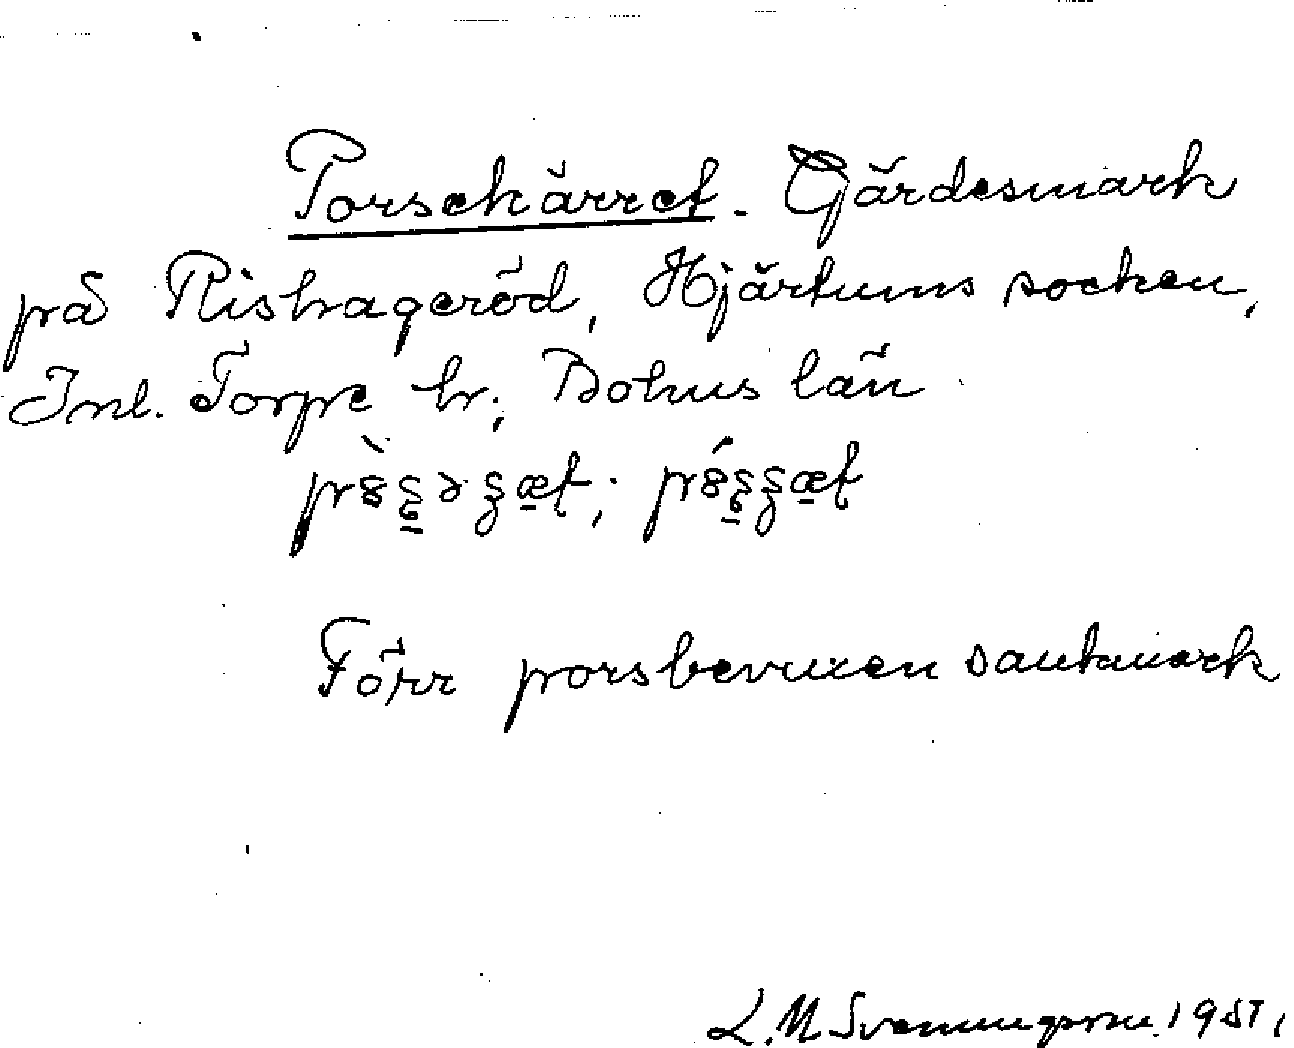 Porsekärret. Gärdesmark
på Rishageröd, Hjärtums socken,
Inl. Torpe hr; Bohus län
Förr porsbevuxen sankmark
L. M Svenungsson. 1951,